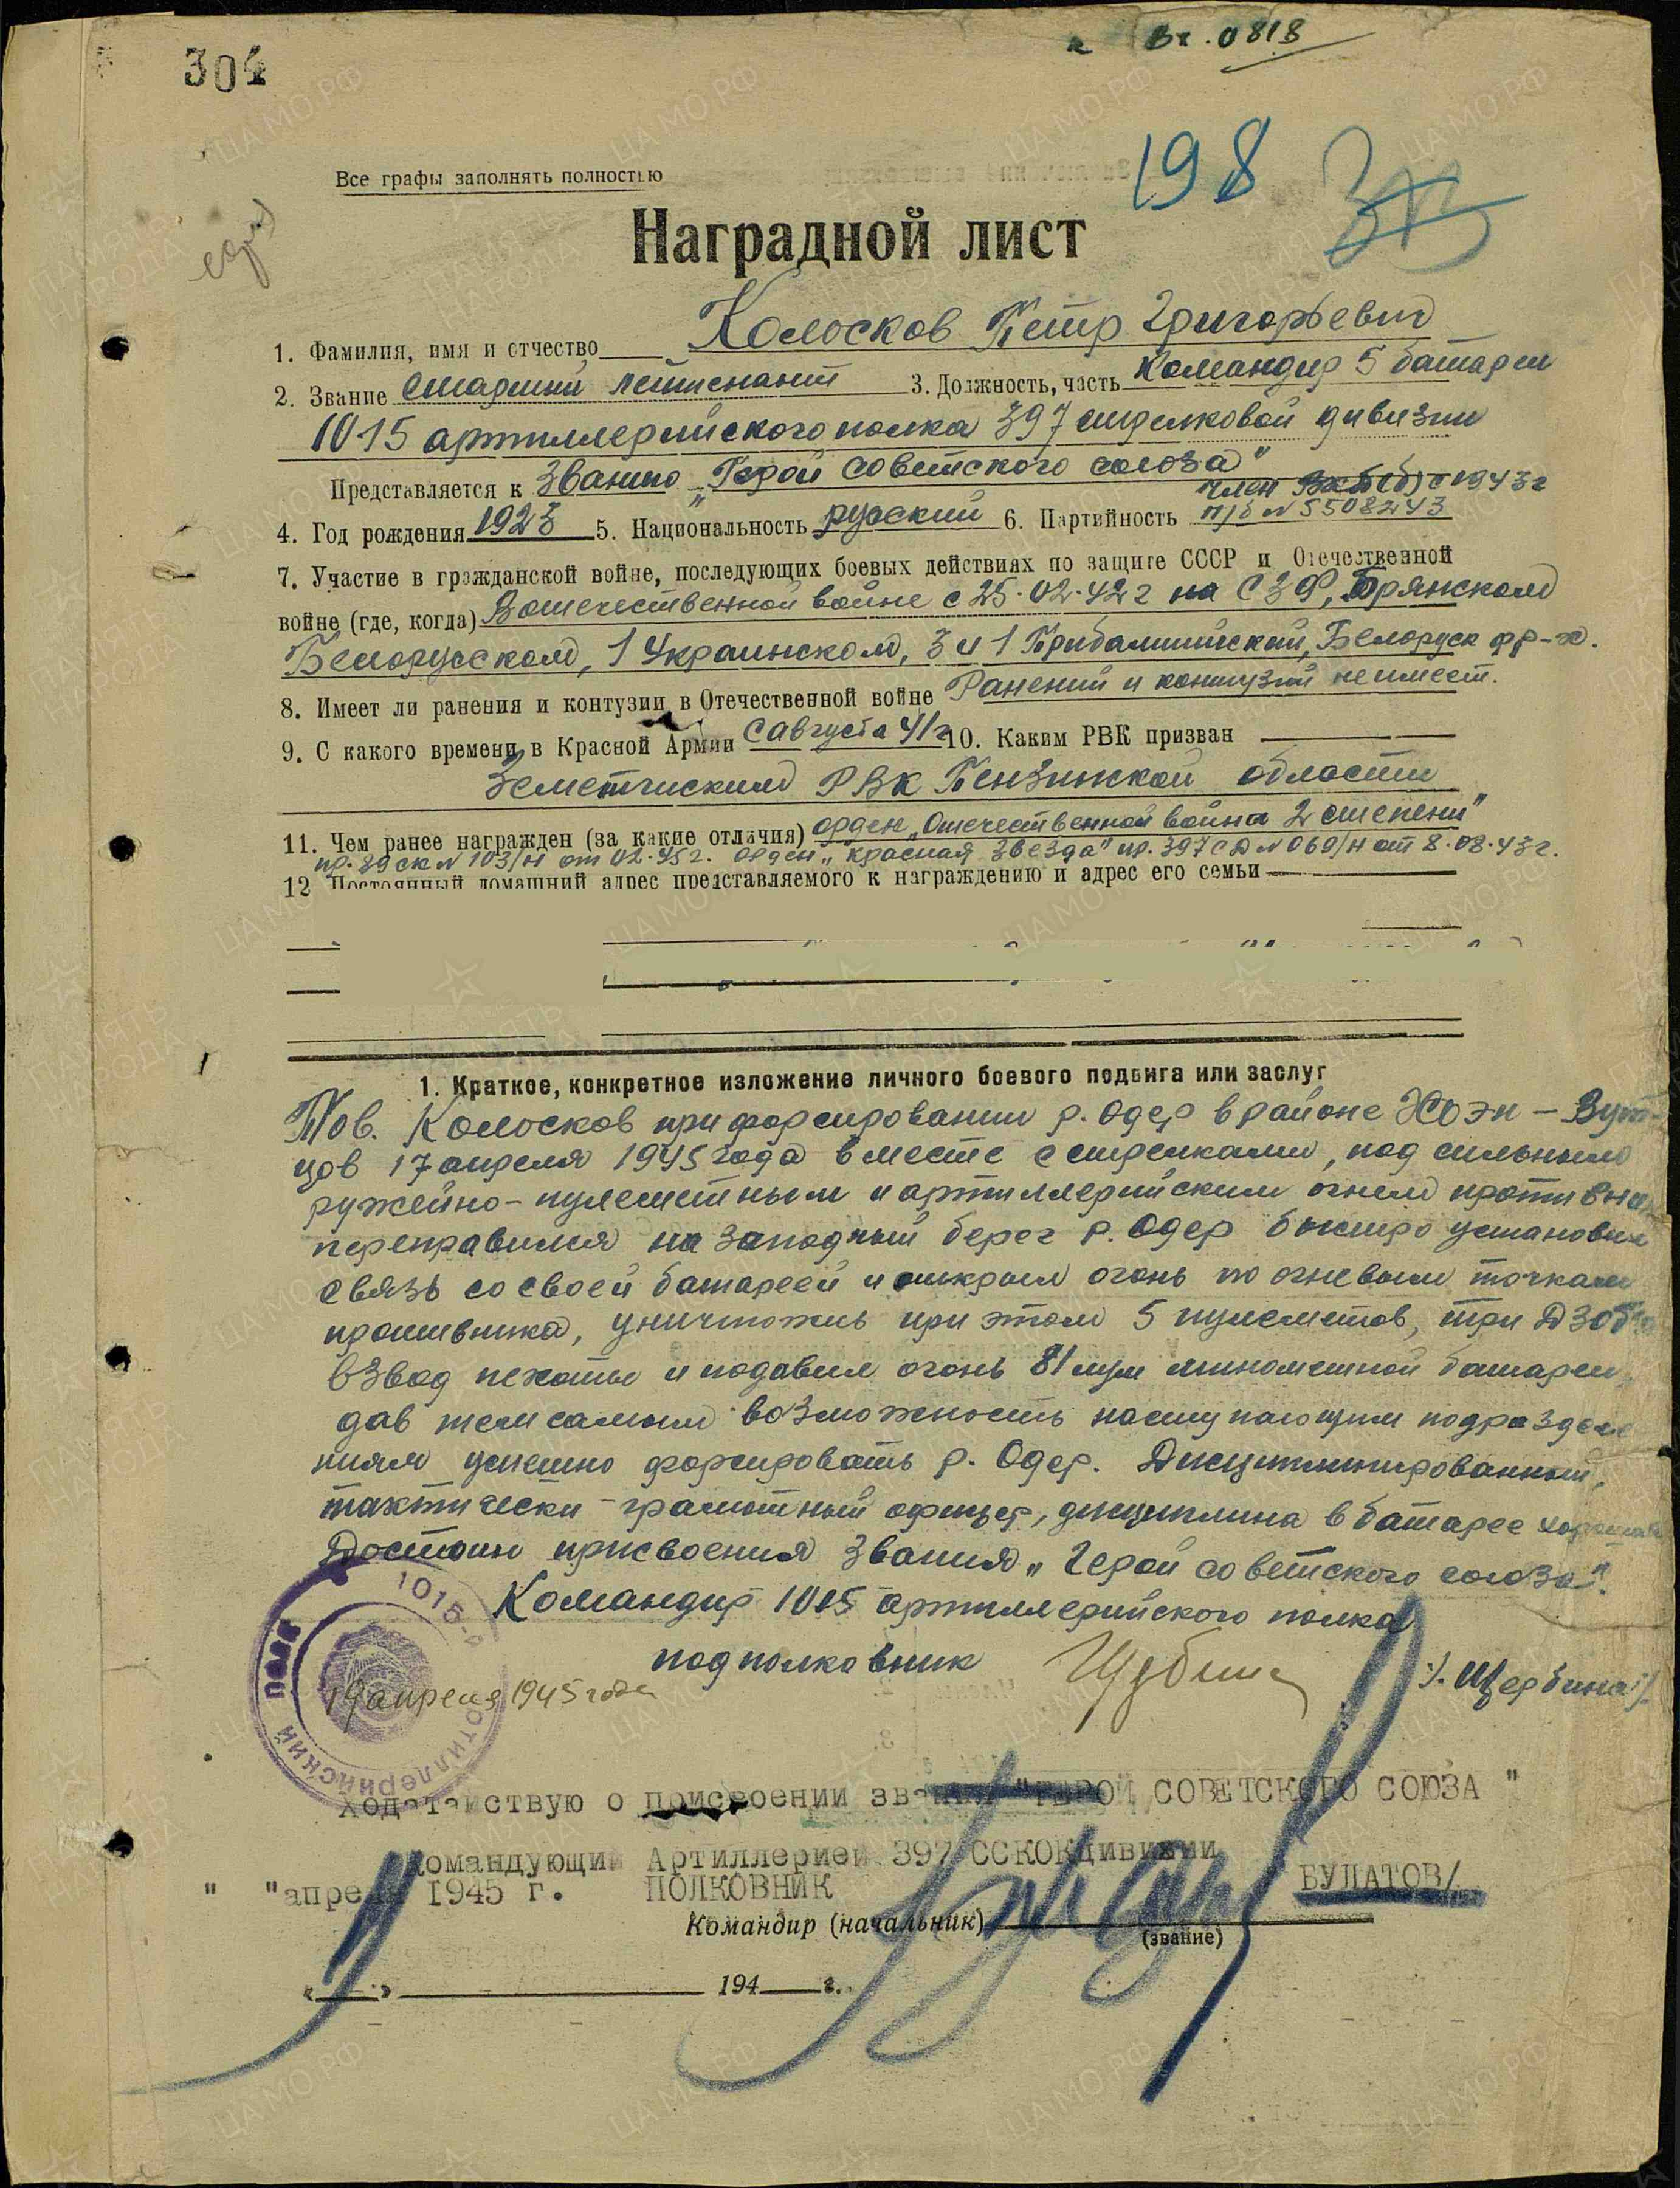 304
Вх. 0818
198
Все графы заполнять полностью
Наградной лист
1. Фамилия, имя и отчество Колосков Петр Григорьевич
2. Звание старший лейтенант 3. Должность, часть Командир 5 батареи
1015 артиллерийского полка 397 стрелковой дивизии
Представляется к званию „Герой советского союза"
член ВКП(б) с 1943 г
4. Год рождения 1923 5. Национальность русский 6. Партийность п/б № 5508243
7. Участие в гражданской войне, последующих боевых действиях по защите СССР и Отечественной
войне (где, когда) В отечественной войне с 25.02.42 г на СЗФ, Брянском
Белорусском, 1 Украинском, 3 и 1 Прибалтийский, Белоруск фр-х.
8. Имеет ли ранения и контузии в Отечественной войне Ранений и контузий не имеет.
9. С какого времени в Красной Армии с августа 41 г 10. Каким РВК призван
Земетчиским РВК Пензинской области
11. Чем ранее награжден (за какие отличия) орден „Отечественной война 2 степени"
пр. 89 ск № 103/н от 02.45 г. орден „Красная Звезда" пр. 397 СД № 060/н от 8.08.43 г.
12 Постоянный домашний адрес представляемого к награждению и адрес его семьи
1. Краткое, конкретное изложение личного боевого подвига или заслуг
Тов. Колосков при форсировании р. Одер в районе Хоэн-Вут-
цов 17 апреля 1945 года вместе с стрелками, под сильным
ружейно-пулеметным и артиллерийским огнем противника
переправился на западный берег р. Одер быстро установил
связь со своей батареей и открыл огонь по огневым точкам
противника, уничтожив при этом 5 пулеметов, три ДЗОТа
взвод пехоты и подавил огонь 81 мм минометной батареи,
дав тем самым возможность наступающим подразделе
ниям успешно форсировать р. Одер. Дисциплинированный,
тактически-грамотный офицер, дисциплина в батарее хорошая
Достоин присвоения звания „Герой советского союза".
Командир 1015 артиллерийского полка
подполковник /. Щербина/.
19 апреля 1945 года
1015 АРТИЛЛЕРИЙСКИЙ ПОЛК
Ходатайствую о присвоении звания "ГЕРОЙ СОВЕТСКОГО СОЮЗА "
Командующий Артиллерией 397 ССКОКдивизии
" "апреля 1945 г. ПОЛКОВНИК БУЛАТОВ/
Командир (начальник)
(звание)
„ " 194 г.